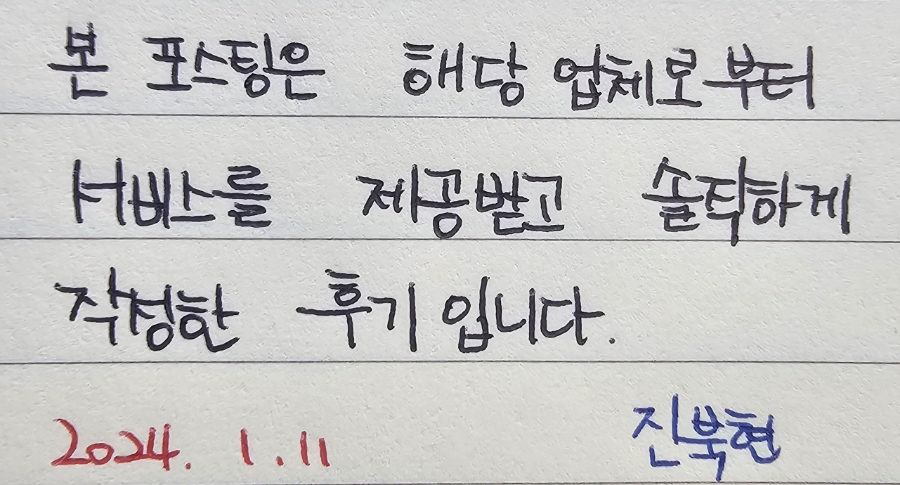 본 포스팅은 해당 업체로부터
서비스를 제공받고 솔직하게
작성한 후기 입니다.
2024. 1. 11 진북현